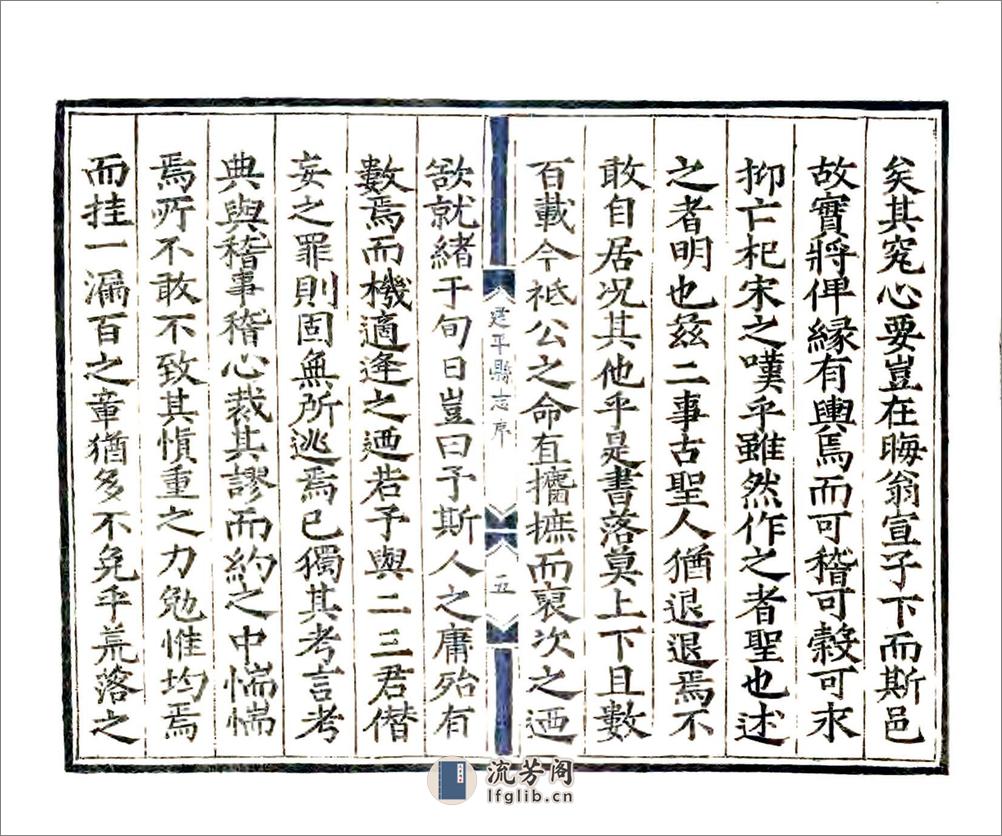 矣其究心要豈在晦翁宣子下而斯邑
故實將俾縁有輿焉而可稽可㲄可求
抑亡杞宋之嘆乎雖然作之者聖也述
之者明也兹二事古聖人猶退退焉不
敢自居况其他乎是書落莫上下且數
百載今祗公之命直攟摭而裒次之迺
建平縣志序
五
欲就緒于旬日豈曰予斯人之庸殆有
數焉而機適逢之迺若予與二三君僭
妄之罪則固無所逃焉已獨其考言考
典與稽事稽心裁其謬而約之中惴惴
焉所不敢不致其慎重之力勉惟均焉
而挂一漏百之章猶多不免乎荒落之
流芳阁
lfglib.cn